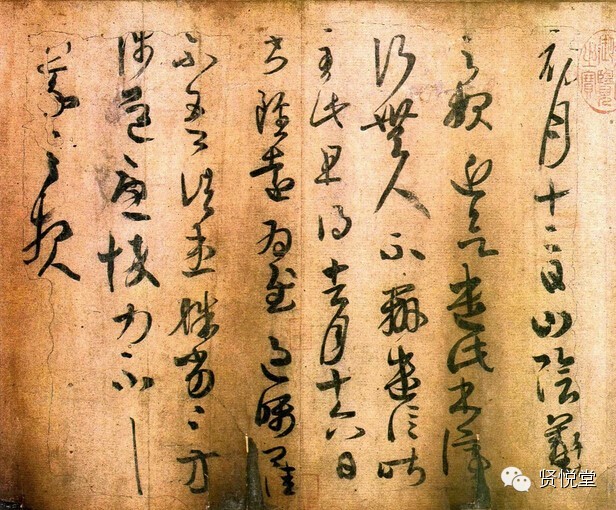 初月十二日山陰羲
之報近欲遣此書停
行無人不辦遣信昨
至此且得去月十六日
書雖遠為慰過囑卿佳
不吾諸患殊劣殊劣方
涉道憂悴力不一一
羲之報
御覽之寶
贤悦堂